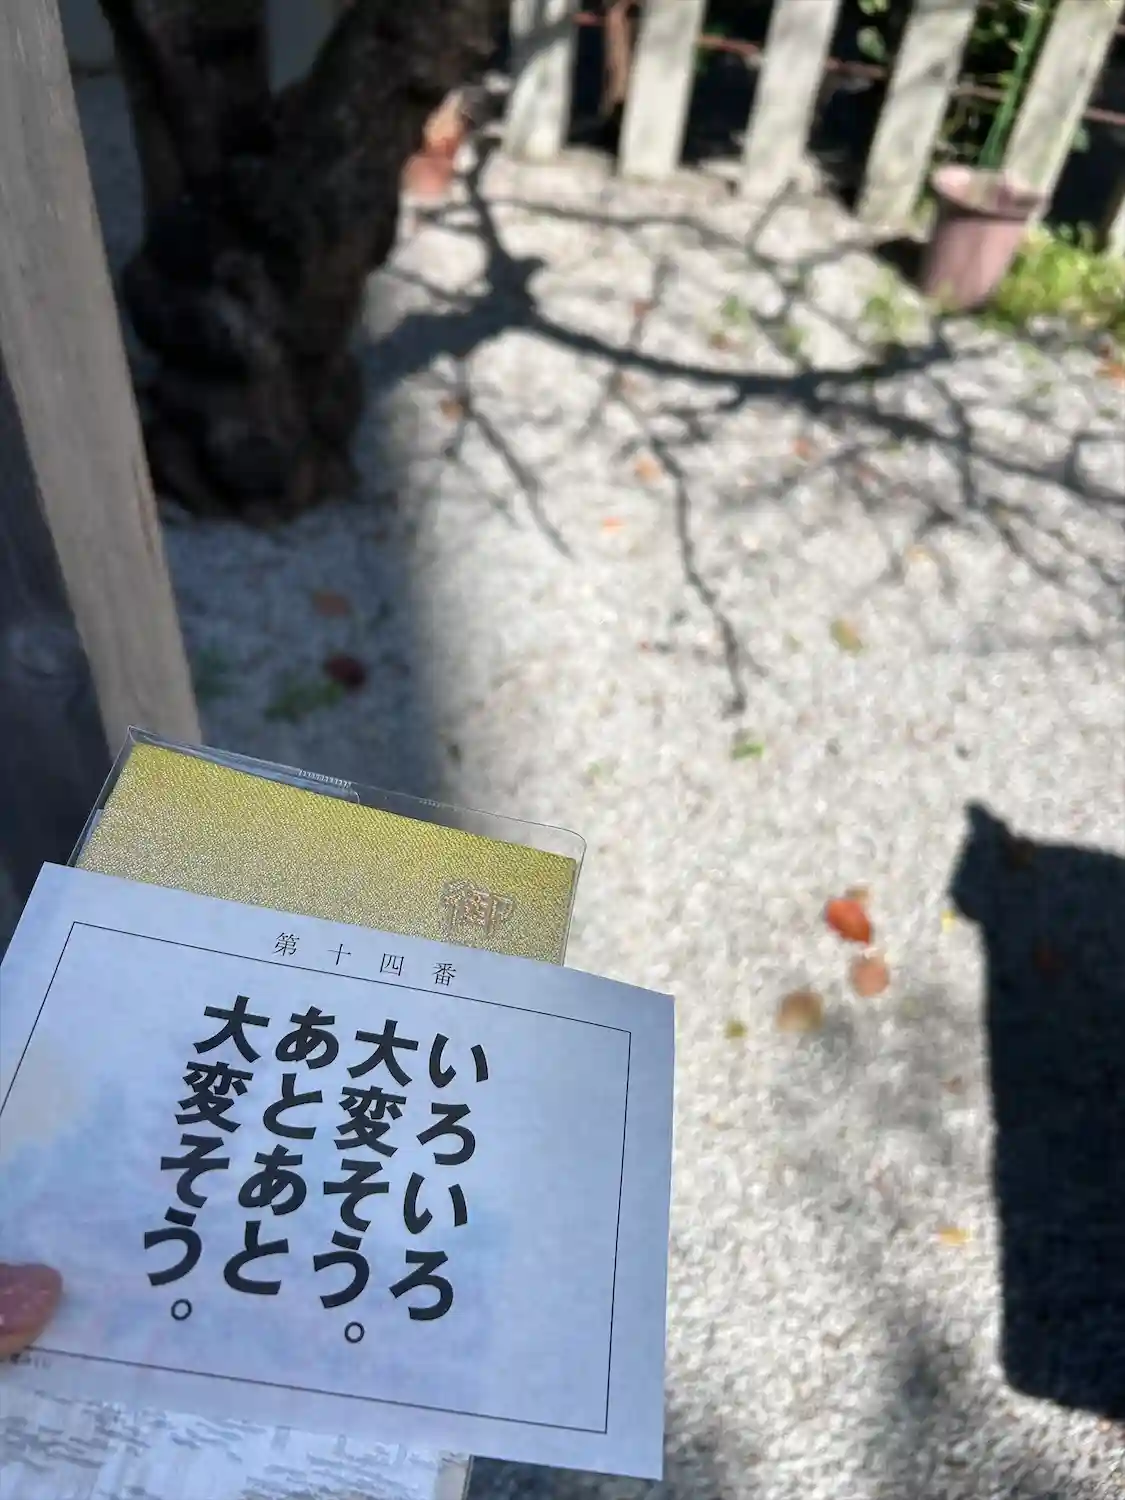 御
第十四番
いろいろ
大変そう。
あとあと
大変そう。